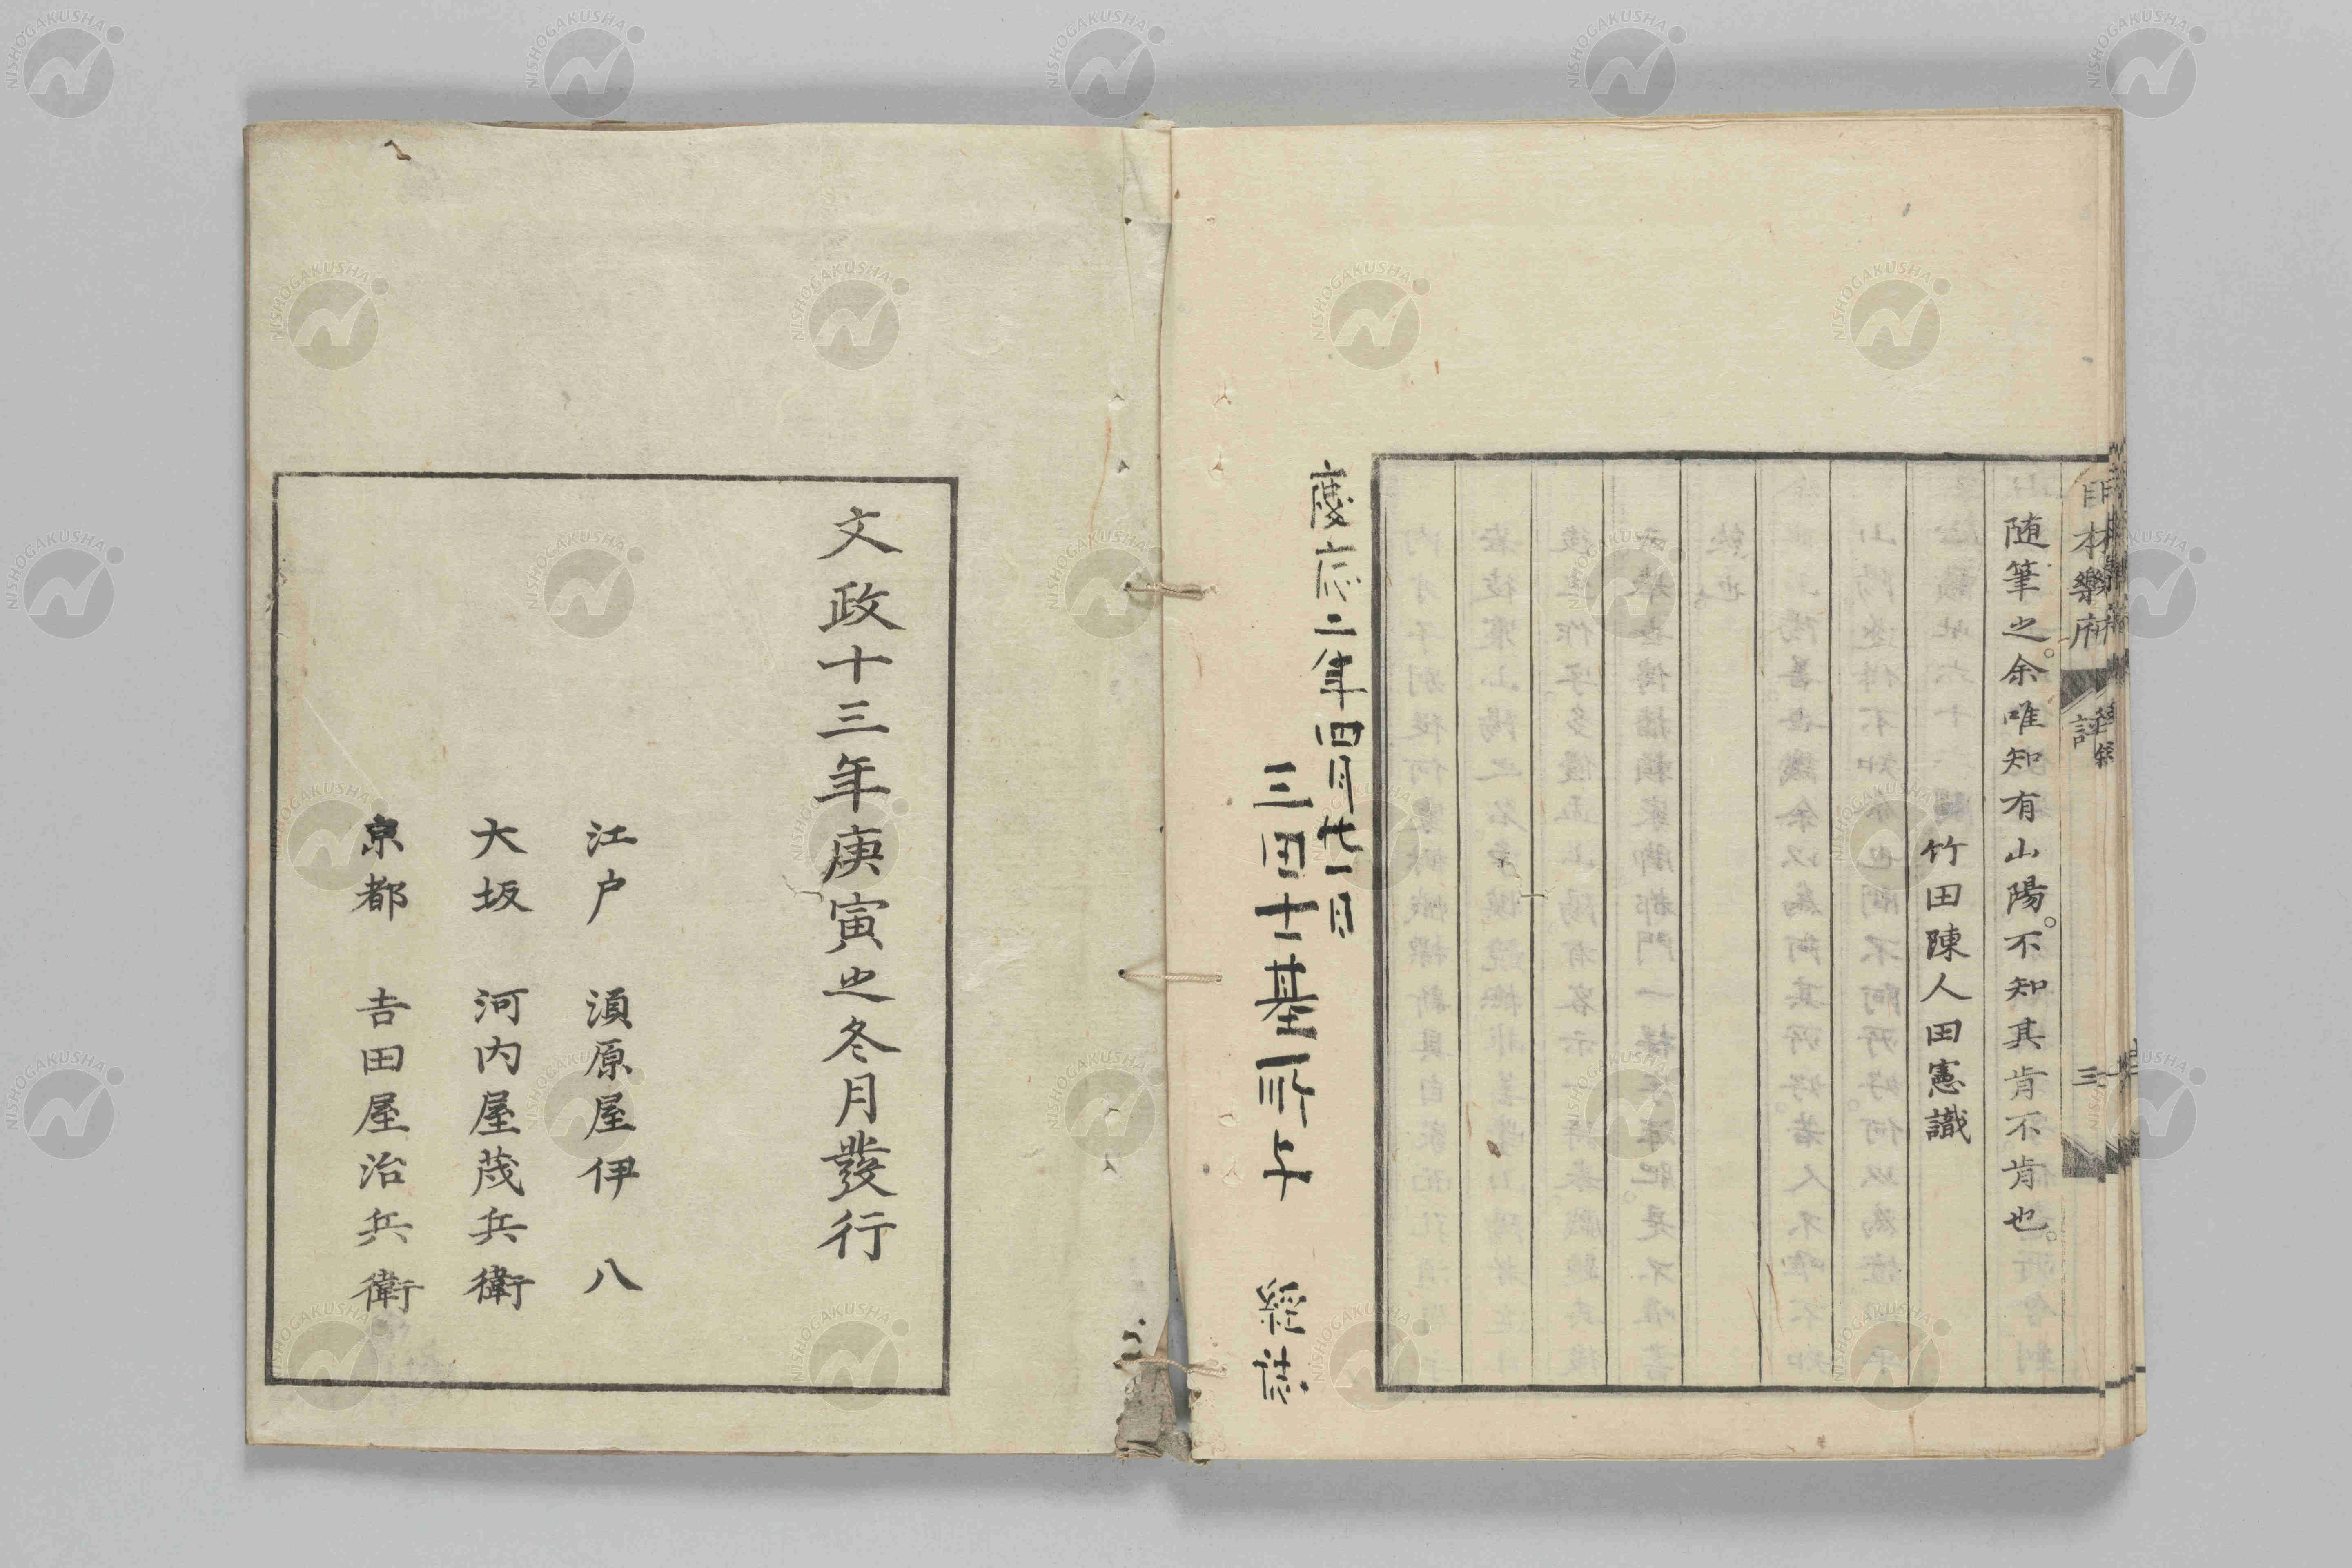 日本樂府
評
三
随筆之。余唯知有山陽。不知其肯不肯也。
竹田陳人田憲識
慶応二年四月廿一日
文政十三年庚寅之冬月發行
江户 須原屋伊八
大坂 河内屋茂兵衛
京都 吉田屋治兵衛
NISHOGAKUSHA